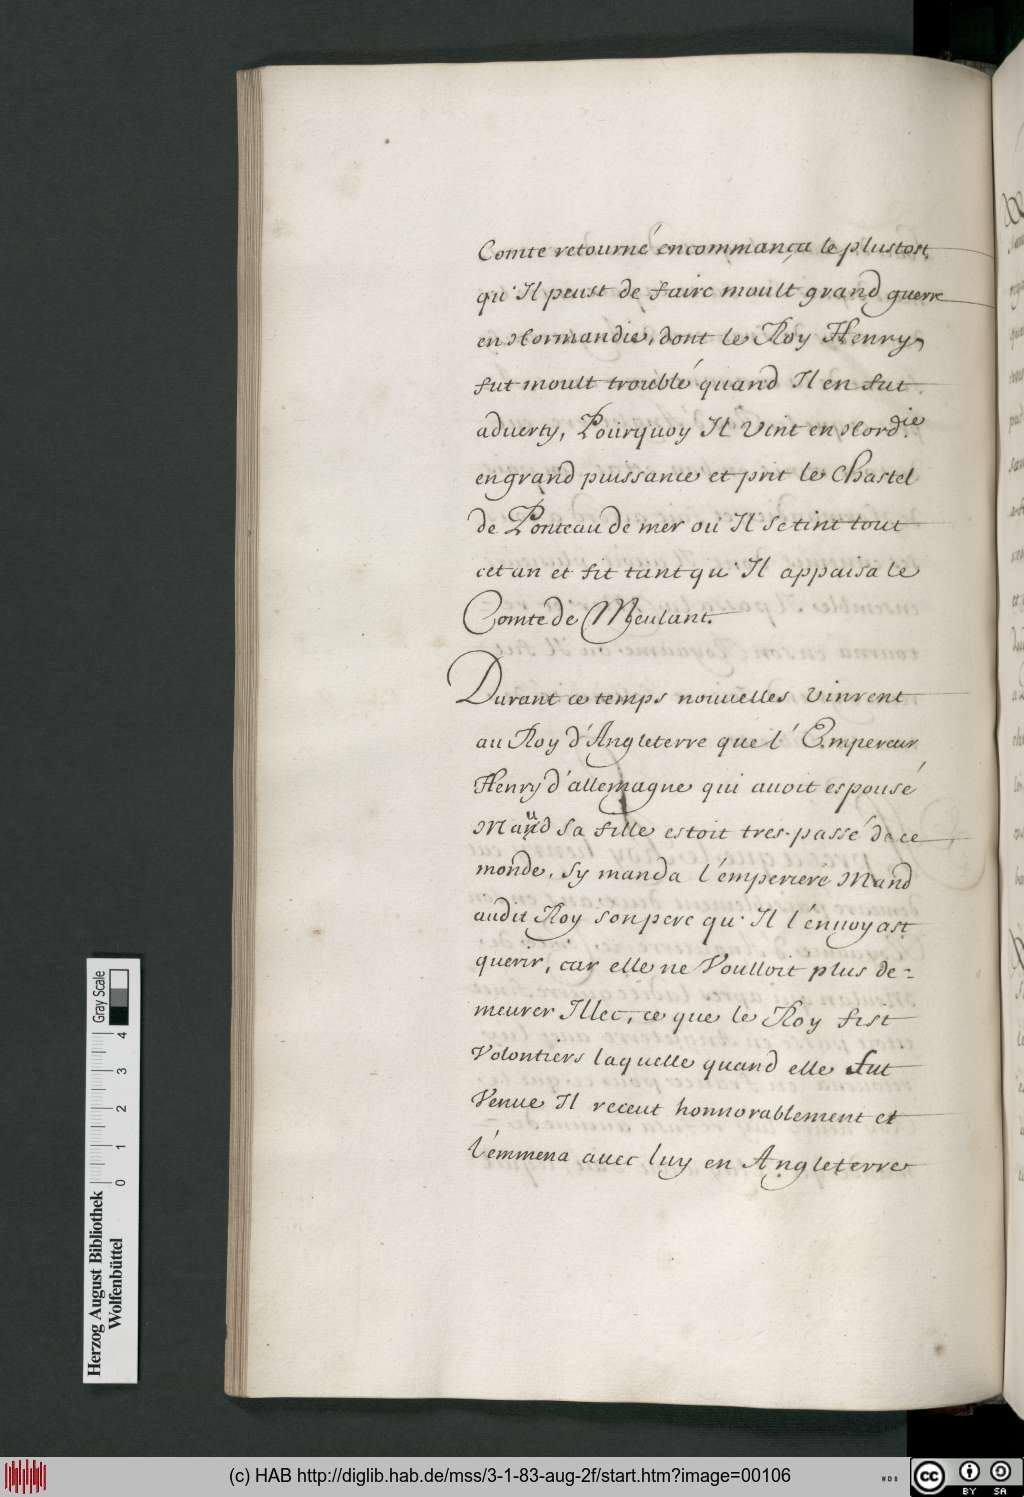 Comte retourné encommança le plustost
qu'Il peust de faire moult grand guerre
en Normandie, dont le Roy Henry
fut moult troublé quand Il en fut
aduerty, Pourquoy Il vint en Nordie.
en grand puissance et prit le Chastel
de Ponteau de mer ou Il se tint tout
cet an et fit tant qu'Il appaisa le
Comte de Meulant.
Durant ce temps nouuelles vinrent
au Roy d'Angleterre que l'Empereur
Henry d'allemagne qui auoit espousé
Maud sa fille estoit tres-passé de ce
monde, sy manda l'émperiere Maud
audit Roy son pere qu'Il l'énuoyast
querir, car elle ne Voulloit plus de=
meurer Illec, ce que le Roy fist
Volontiers laquelle quand elle fut
Venue Il receut honnorablement et
l'émmena auec luy en Angleterre
Herzog August Bibliothek
Wolfenbüttel
0 1 2 3 4
Gray Scale
(c) HAB http://diglib.hab.de/mss/3-1-83-aug-2f/start.htm?image=00106
WDB
cc BY SA